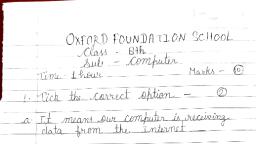 OXFORD FOUNDATION SCHOOL
Class - 8th
Sub - Computer
Time 1 hour Marks - 10
1. Tick the correct option - 2
a It means our computer is receiving
data from the internet